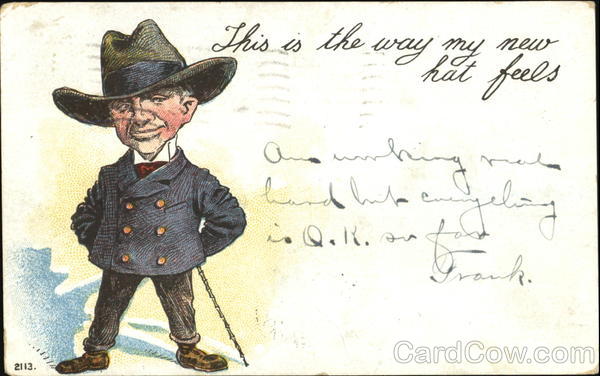 This is the way my new
hat feels
Am working real
hard but everything
is O.K. so far
Frank.
2113.
CardCow.com